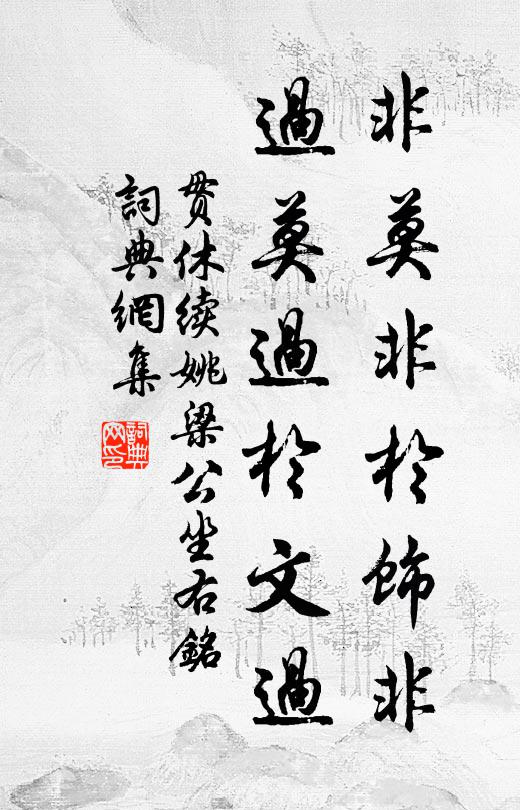 非莫非於飾非
過莫過於文過
贯休续姚梁公坐右銘
詞典網集
詞典
网印